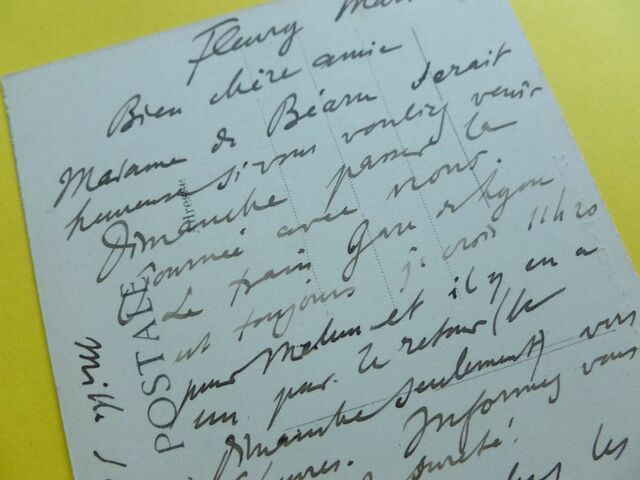 Fleury
Bien chère amie
Madame de Béarn serait
heureuse si vous vouliez venir
Dimanche passer la
journée avec nous.
Le train Gare de Lyon
est toujours je crois 11h20
pour Melun et il y en a
un pour le retour (le
Dimanche seulement) vers
heures. Informez vous
sureté!
les
POSTALE